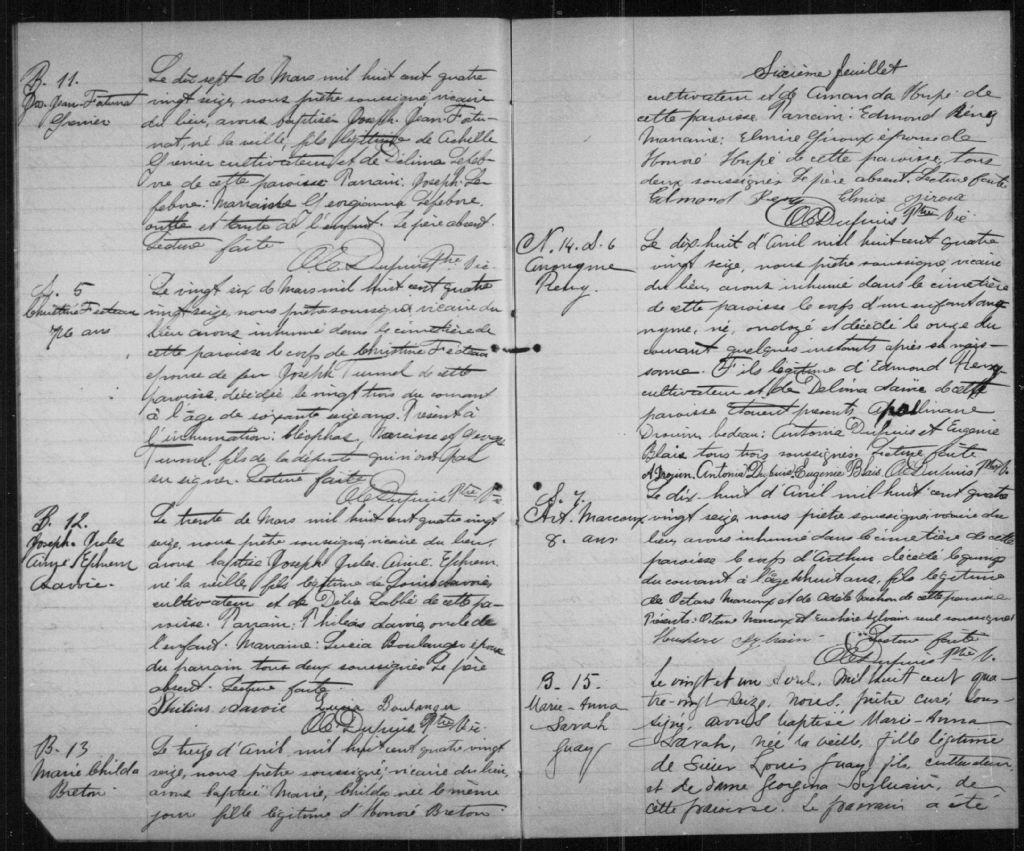 B. 11.
Jos. Jean-Fortunat
Grenier
Le dix sept de Mars mil huit cent quatre
vingt seize, nous prêtre soussigné, vicaire
du lieu, avons baptisé Joseph Jean-Fortu-
nat, né la veille, fils légitime de Achille
Grenier cultivateur et de Délima Lefeb-
vre de cette paroisse. Parrain: Joseph Le-
febvre: marraine Georgianna Lefebvre,
oncle et tante de l'enfant. Le père absent.
Lecture faite
O.E. Dupuis Ptre Vic.
S. 5
Christine Fecteau
76 ans
Le vingt six de Mars mil huit cent quatre
vingt seize, nous prêtre soussigné, vicaire du
lieu avons inhumé dans le cimetière de
cette paroisse le corps de Christine Fecteau
épouse de feu Joseph Turmel de cette
paroisse, décédée le vingt trois du courant
à l'âge de soixante seize ans. Présent à
l'inhumation: Cléophas, Narcisse et George
Turmel, fils de la défunte qui n'ont pas
su signer. Lecture faite
O.E. Dupuis Ptre Vic
B. 12.
Joseph Jules
Aimé Ephrem
Savoie.
Le trente de Mars mil huit cent quatre vingt
seize, nous prêtre soussigné, vicaire du lieu,
avons baptisé Joseph Jules Aimé Ephrem,
né la veille, fils légitime de Louis Savoie,
cultivateur et de Délia Labbé de cette pa-
roisse. Parrain: Philéas Savoie, oncle de
l'enfant. Marraine: Lucia Boulanger épouse
du parrain tous deux soussignés. Le père
absent. Lecture faite.
Philias Savoie Lucia Boulanger
O.E. Dupuis Ptre Vic.
B. 13
Marie Childa
Breton
Le treize d'Avril mil huit cent quatre vingt
seize, nous prêtre soussigné, vicaire du lieu,
avons baptisé Marie, Childa née le même
jour fille légitime d'Honoré Breton
Sixième feuillet
cultivateur et de Amanda Houpé de
cette paroisse Parrain: Edmond Rémy
Marraine: Elmire Giroux épouse de
Honoré Houpé de cette paroisse, tous
deux soussignés Le père absent. Lecture faite
Edmond Remy Elmire Giroux
O.E. Dupuis Ptre Vic
N. 14. S. 6
Anonyme
Remy.
Le dix huit d'Avril mil huit cent quatre
vingt seize, nous prêtre soussigné, vicaire
du lieu, avons inhumé dans le cimetière
de cette paroisse le corps d'un enfant ano-
nyme, né, ondoyé et décédé le onze du
courant quelques instants après sa nais-
sance. Fils légitime d'Edmond Remy
cultivateur et de Delima de cette
paroisse Etaient présents Apollinaire
Drouin, bedeau: Antonia Dupuis et Eugenie
Blais tous trois soussignés. Lecture faite
A. Drouin. Antonia Dupuis. Eugenie Blais O.E. Dupuis Ptre V.
S. 7.
Art. Marcoux
8. ans
Le dix-huit d'Avril mil huit cent quatre
vingt seize, nous prêtre soussigné, vicaire du
lieu, avons inhumé dans le cimetière de cette
paroisse le corps d'Arthur décédé le quinze
du courant à l'âge huit ans, fils légitime
de Octave Marcoux et de Odele Vachon de cette paroisse
Présents: Octave Marcoux et Euchère Sylvain seul soussigné
Heuchere Sylvain Lecture faite
O.E. Dupuis Ptre V.
B. 15.
Marie-Anna
Sarah
Guay
Le vingt et un Avril, mil huit cent qua-
tre-vingt seize, Nous, prêtre curé, sous-
signé, avons baptisé Marie-Anna
Sarah, née la veille, fille légitime
de Sieur Louis Guay, fils, cultivateur,
et de dame Georgina Sylvain, de
cette paroisse. Le parrain a été